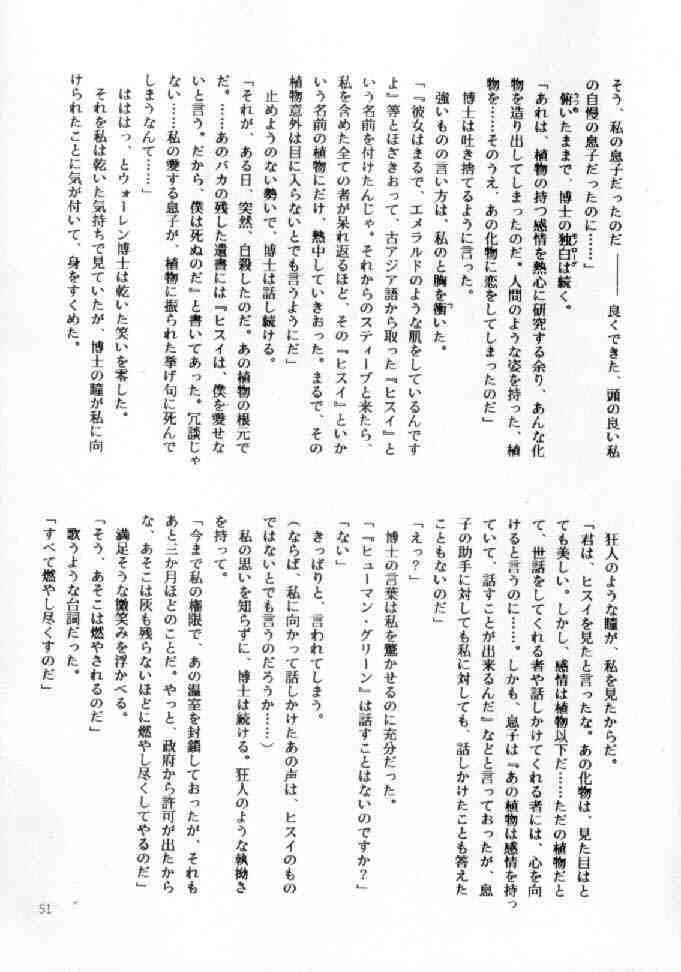 そう、私の息子だったのだ ―――― 良くできた、頭の良い私
の自慢の息子だったのに……」
俯いたままで、博士の独白は続く。
「あれは、植物の持つ感情を熱心に研究する余り、あんな化
物を造り出してしまったのだ。人間のような姿を持った、植
物を……そのうえ、あの化物に恋をしてしまったのだ」
博士は吐き捨てるように言った。
強いものの言い方は、私のと胸を衝いた。
「『彼女はまるで、エメラルドのような肌をしているんです
よ』等とほざきおって、古アジア語から取った『ヒスイ』と
いう名前を付けたんじゃ。それからのスティーブと来たら、
私を含めた全ての者が呆れ返るほど、その『ヒスイ』といか
いう名前の植物にだけ、熱中していきおった。まるで、その
植物意外は目に入らないとでも言うようにだ」
止めようのない勢いで、博士は話し続ける。
「それが、ある日、突然、自殺したのだ。あの植物の根元で
だ。……あのバカの残した遺書には『ヒスイは、僕を愛せな
いと言う。だから、僕は死ぬのだ』と書いてあった。冗談じゃ
ない……私の愛する息子が、植物に振られた挙げ句に死んで
しまうなんて……」
はははっ、とウォーレン博士は乾いた笑いを零した。
それを私は乾いた気持ちで見ていたが、博士の瞳が私に向
けられたことに気が付いて、身をすくめた。
狂人のような瞳が、私を見たからだ。
「君は、ヒスイを見たと言ったな。あの化物は、見た目はと
ても美しい。しかし、感情は植物以下だ……ただの植物だと
て、世話をしてくれる者や話しかけてくれる者には、心を向
けると言うのに……。しかも、息子は『あの植物は感情を持っ
ていて、話すことが出来るんだ』などと言っておったが、息
子の助手に対しても私に対しても、話しかけたことも答えた
こともないのだ」
「えっ?」
博士の言葉は私を驚かせるのに充分だった。
「『ヒューマン・グリーン』は話すことはないのですか?」
「ない」
きっぱりと、言われてしまう。
(ならば、私に向かって話しかけたあの声は、ヒスイのもの
ではないとでも言うのだろうか……)
私の思いを知らずに、博士は続ける。狂人のような執拗さ
を持って。
「今まで私の権限で、あの温室を封鎖しておったが、それも
あと三か月ほどのことだ。やっと、政府から許可が出たから
な、あそこは灰も残らないほどに燃やし尽くしてやるのだ」
満足そうな微笑みを浮かべる。
「そう、あそこは燃やされるのだ」
歌うような台詞だった。
「すべて燃やし尽くすのだ」
51